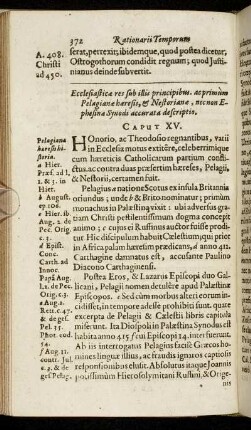 372 Rationarii Temporum
A. 408.
Christi
ad 430.
ferat, pertexit; ibidemque, quod postea dicetur,
Ostrogothorum condidit regnum; quod Justi-
nianus deinde subvertit.
Ecclesiastica res sub illis principibus, ac primùm
Pelagiana hæresis, & Nestoriana, necnon E-
phesina Synodi accurata descriptio.
CAPUT XV.
Pelagiana
hæresis hi-
storia.
a Hier.
Præf. ad l.
1. & 3. in
Hier.
b August.
ep. 106.
c Hier. ib.
Aug. 2. de
Pec. Orig.
c. 3.
d
Conc.
Carth. ad
Innoc.
Aug.
l. 2. de Pec.
Orig. c. 3.
e Aug. 2.
Retr. c. 47.
& de gest.
Pel. 35.
Phot. cod.
54.
f Aug. 1.
cont. Jul.
c. 5. & de
gest. Pelag.
HOnorio, ac Theodosio regnantibus, varii
in Ecclesia motus extitere, celeberrimique
cum hæreticis Catholicarum partium confli-
ctus, ac contra duas præsertim hæreses, Pelagii,
& Nestorii, certamen fuit.
Pelagius a natione Scotus ex insula Britannia
oriundus; unde & b Brito nominatur; primùm
monachus in Palæstina vixit: ubi adversùs gra-
tiam Christi pestilentissimum dogma concepit
animo; c cujus ei Ruffinus auctor fuisse prodi-
tur. Hic discipulum habuit Cælestium, qui prior
in Africa palam hæresim prædicans, d anno 412.
Carthagine damnatus est, accusante Paulino
Diacono Carthaginensi.
Postea Eros, & Lazarus Episcopi duo Gal-
licani, Pelagii nomen detulere apud Palæstinæ
Episcopos. e Sed cùm morbus alteri eorum in-
cidisset, in tempore adesse prohibiti sunt. quare
excerpta de Pelagii & Cælestii libris capitula
miserunt. Ita Diospoli in Palæstina Synodus est
habita anno 415. cui Episcopi 14. interfuerunt.
Ab iis interrogatus Pelagius facilè Græcos ho-
mines linguæ illius, ac fraudis ignaros captiosis
responsionibus elusit. Absolutus itaque Joannis
potissimùm Hierosolymitani Ruffini, & Orige-
nis